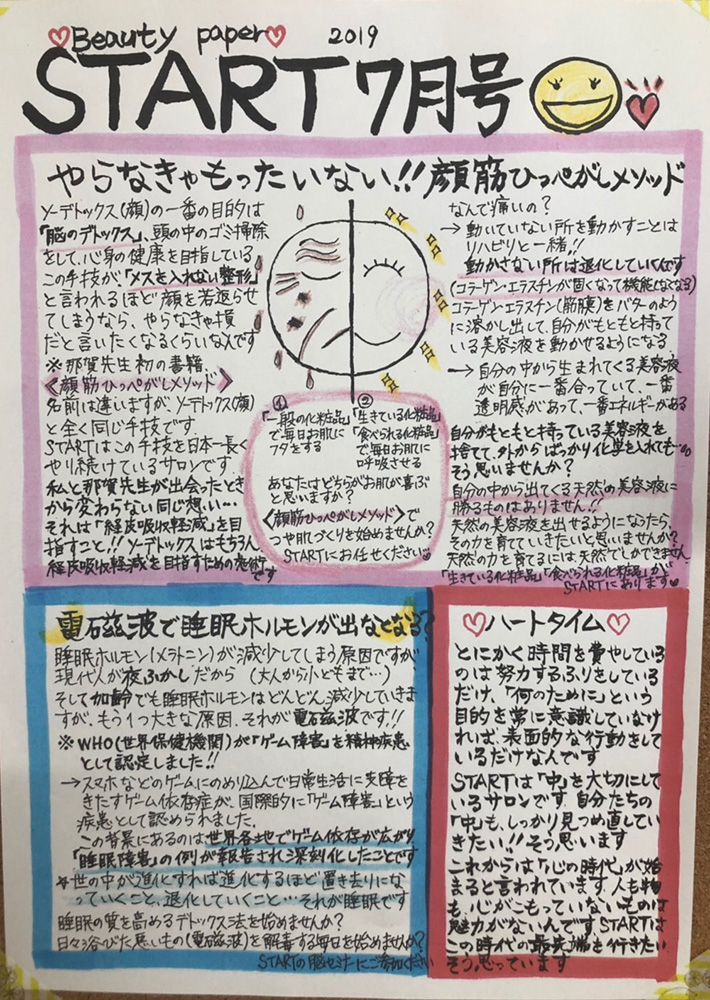 ♡Beauty paper♡ 2019
START 7月号
やらなきゃもったいない!! 顔筋ひっぺがしメソッド
ソーデトックス(顔)の一番の目的は
「脳のデトックス」、頭の中のゴミ掃除
をして、心身の健康を目指している
この手技が、「メスを入れない整形」
と言われるほど顔を若返らせ
てしまうなら、やらなきゃ損
だと言いたくなるくらいなんです
※那賀先生初の書籍
《顔筋ひっぺがしメソッド》
名前は違いますが、ソーデトックス(顔)
と全く同じ手技です。
STARTはこの手技を日本一長く
やり続けているサロンです
私と那賀先生が出会ったとき
から変わらない同じ想い…
それは「経皮吸収軽減」を目
指すこと!! ソーデトックスはもちろん
経皮吸収軽減を目指すための施術
です
①
「一般の化粧品」
で毎日お肌に
フタをする
②
「生きている化粧品」
「食べられる化粧品」
で毎日お肌に
呼吸させる
あなたはどちらがお肌が喜ぶ
と思いますか?
《顔筋ひっぺがしメソッド》で
つや肌づくりを始めませんか?
STARTにお任せください♡
なんで痛いの?
→ 動いていない所を動かすことは
リハビリと一緒!!
動かさない所は退化していくんです
(コラーゲン・エラスチンが固くなって機能しなくなる)
コラーゲン・エラスチン(筋膜)をバターのよう
に溶かし出して、自分がもともと持って
いる美容液を動かせるようになる
→ 自分の中から生まれてくる美容液
が自分に一番合っていて、一番
透明感があって、一番エネルギーがある
自分がもともと持っている美容液を
捨てて、外からばっかり化学を入れても…
そう思いませんか?
自分の中から出てくる天然の美容液に
勝るものはありません!!
天然の美容液を出せるようになったら、
その力を育てていきたいと思いませんか?
天然の力を育てるには、天然でしかできません
「生きている化粧品」「食べられる化粧品」が
STARTにあります♡
電磁波で睡眠ホルモンが出なくなる?
睡眠ホルモン(メラトニン)が減少してしまう原因ですが、
現代人が夜ふかしだから (大人から小どもまで…)
そして加齢でも睡眠ホルモンはどんどん減少していきま
すが、もう1つ大きな原因、それが電磁波です!!
※ WHO(世界保健機関)が「ゲーム障害」を精神疾患
として認定しました!!
→スマホなどのゲームにのめり込んで日常生活に支障を
きたすゲーム依存症が、国際的に「ゲーム障害」という
疾患として認められました。
この背景にあるのは世界各地でゲーム依存が広がり
「睡眠障害」の例が報告され深刻化したことです
*世の中が進化すれば進化するほど置き去りにな
っていくこと、退化していくこと…それが睡眠です
睡眠の質を高めるデトックス法を始めませんか?
日々浴びた悪いもの(電磁波)を解毒する毎日を始めませんか?
STARTの脳セミナーにご参加ください
♡ハートタイム♡
とにかく時間を費やしている
のは努力するふりをしている
だけ、「何のために」という
目的を常に意識していなけ
れば、表面的な行動をして
いるだけなんです
STARTは「中」を大切にして
いるサロンです 自分たちの
「中」も、しっかり見つめ直してい
きたい!! そう思います
これからは「心の時代」が始
まると言われています 人も物
も、心がこもっていないものは
魅力がないんです STARTは
この時代の最先端を行きたい
そう思っています